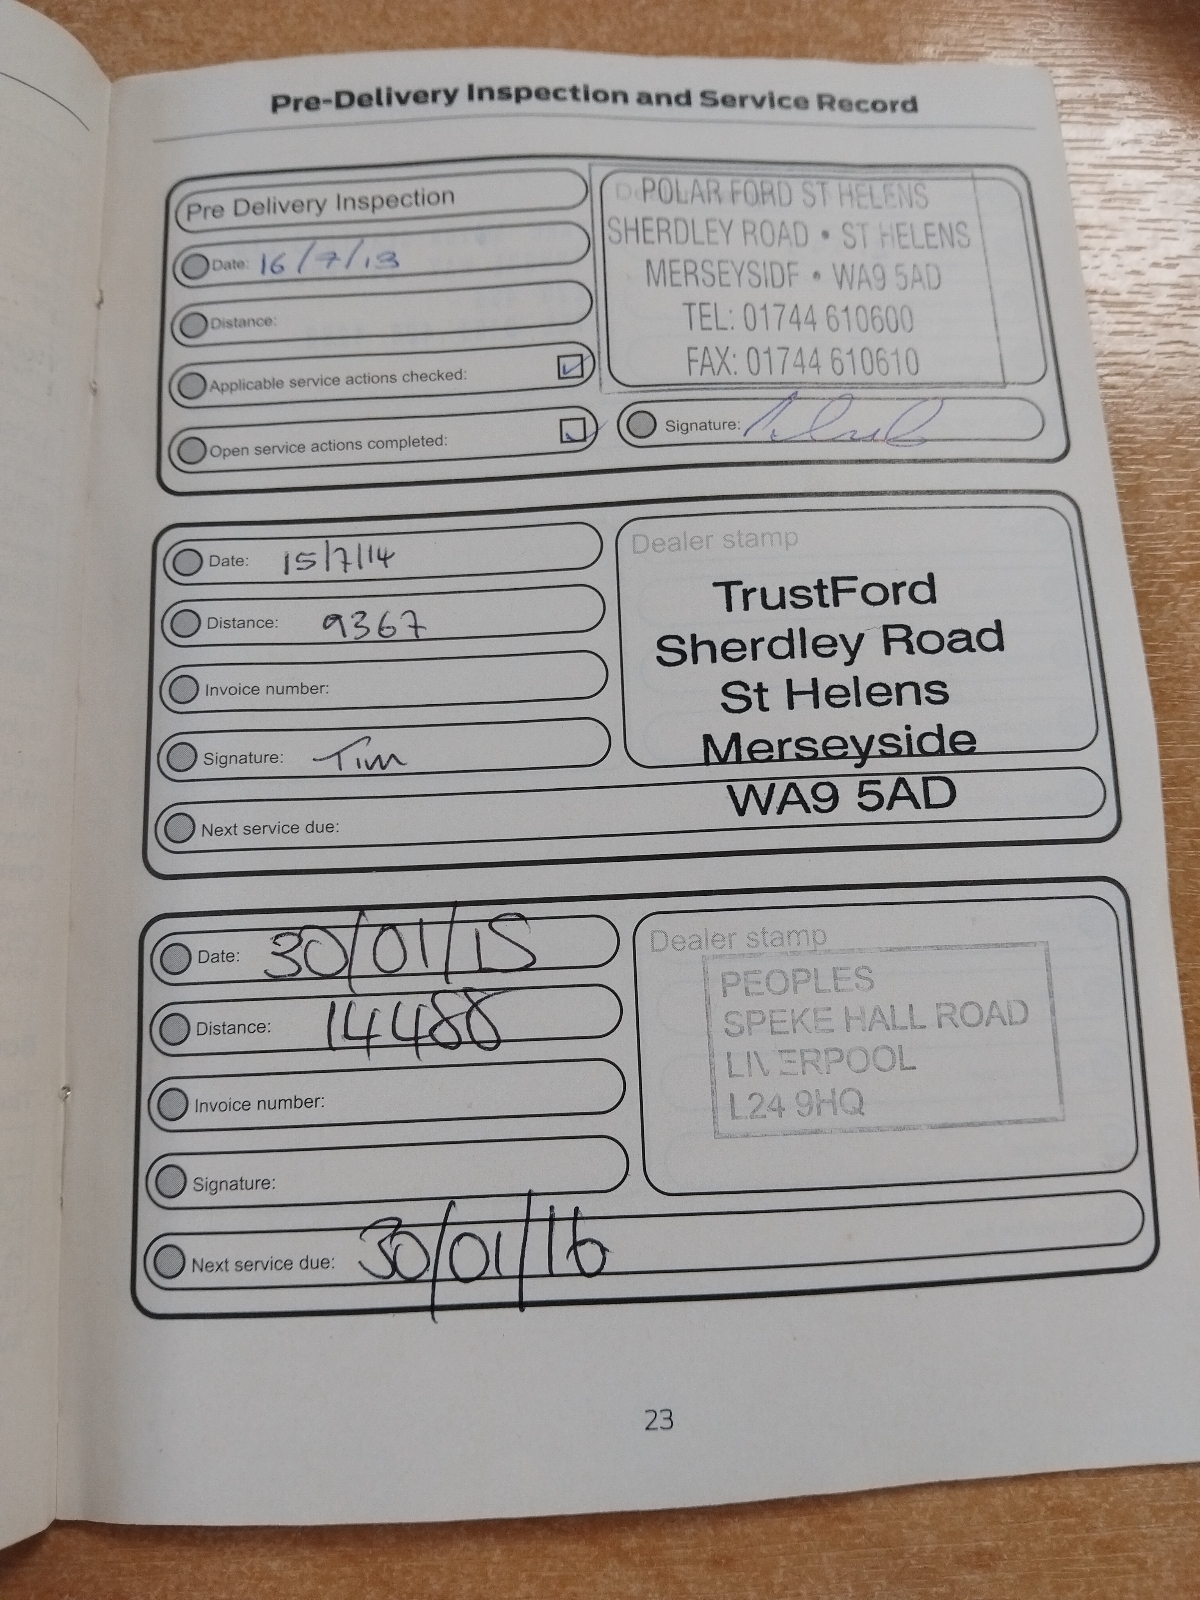 Pre-Delivery Inspection and Service Record
Pre Delivery Inspection
Date: 16/7/13
Distance:
Applicable service actions checked:
Open service actions completed:
POLAR FORD ST HELENS
SHERDLEY ROAD • ST HELENS
MERSEYSIDE • WA9 5AD
TEL: 01744 610600
FAX: 01744 610610
Signature:
Date: 15/7/14
Distance: 9367
Invoice number:
Signature: Tim
Next service due:
Dealer stamp
TrustFord
Sherdley Road
St Helens
Merseyside
WA9 5AD
Date: 30/01/15
Distance: 14488
Invoice number:
Signature:
Next service due: 30/01/16
Dealer stamp
PEOPLES
SPEKE HALL ROAD
LIVERPOOL
L24 9HQ
23